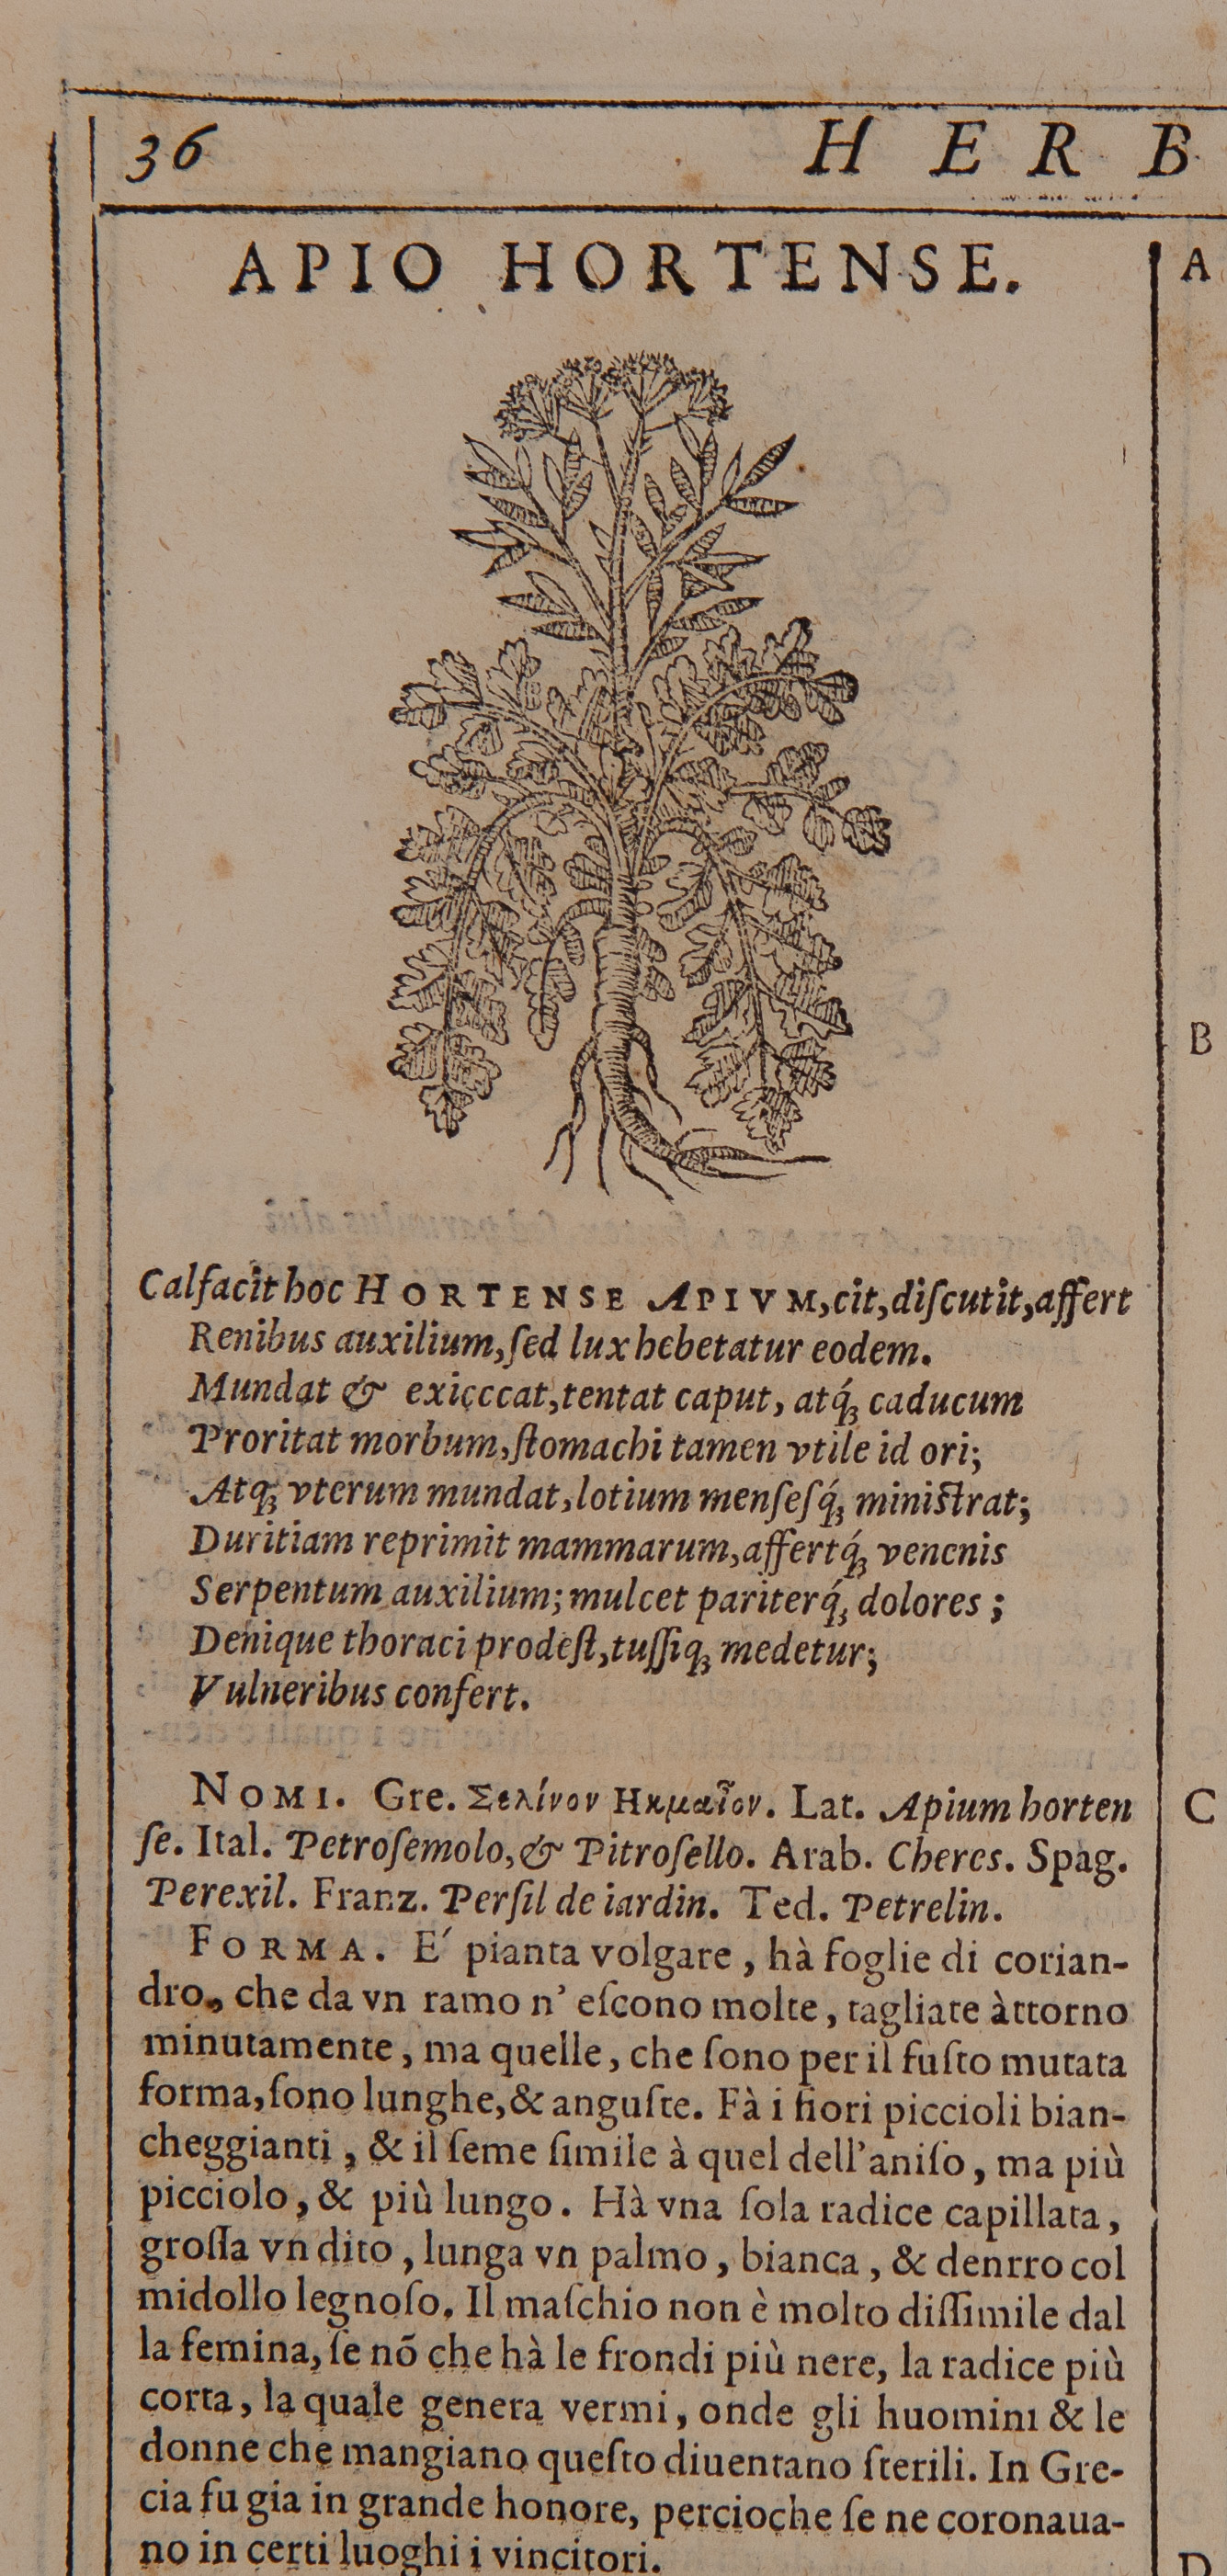 36
HERB
APIO HORTENSE.
A
B
Calfacit hoc HORTENSE APIVM, cit, diſcutit, affert
Renibus auxilium, ſed lux hebetatur eodem.
Mundat & exicccat, tentat caput, atq́; caducum
Proritat morbum, ſtomachi tamen vtile id ori;
Atq; vterum mundat, lotium menſeſq́; miniſtrat;
Duritiam reprimit mammarum, affertq́; venenis
Serpentum auxilium; mulcet pariterq́; dolores;
Denique thoraci prodeſt, tuſſiq; medetur;
Vulneribus confert.
NOMI. Gre. Σελίνον Ηκμαῖον. Lat. Apium horten
C
ſe. Ital. Petroſemolo, & Pitroſello. Arab. Cheres. Spag.
Perexil. Franz. Perſil de iardin. Ted. Petrelin.
FORMA. E´ pianta volgare, hà foglie di corian-
dro, che da vn ramo n' eſcono molte, tagliate àttorno
minutamente, ma quelle, che ſono per il fuſto mutata
forma, ſono lunghe, & anguſte. Fà i fiori piccioli bian-
cheggianti, & il ſeme ſimile à quel dell'aniſo, ma più
picciolo, & più lungo. Hà vna ſola radice capillata,
groſſa vn dito, lunga vn palmo, bianca, & denrro col
midollo legnoſo. Il maſchio non è molto diſſimile dal
la femina, ſe nõ che hà le frondi più nere, la radice più
corta, la quale genera vermi, onde gli huomini & le
donne che mangiano queſto diuentano ſterili. In Gre-
cia fu gia in grande honore, percioche ſe ne coronaua-
no in certi luoghi i vincitori.
D